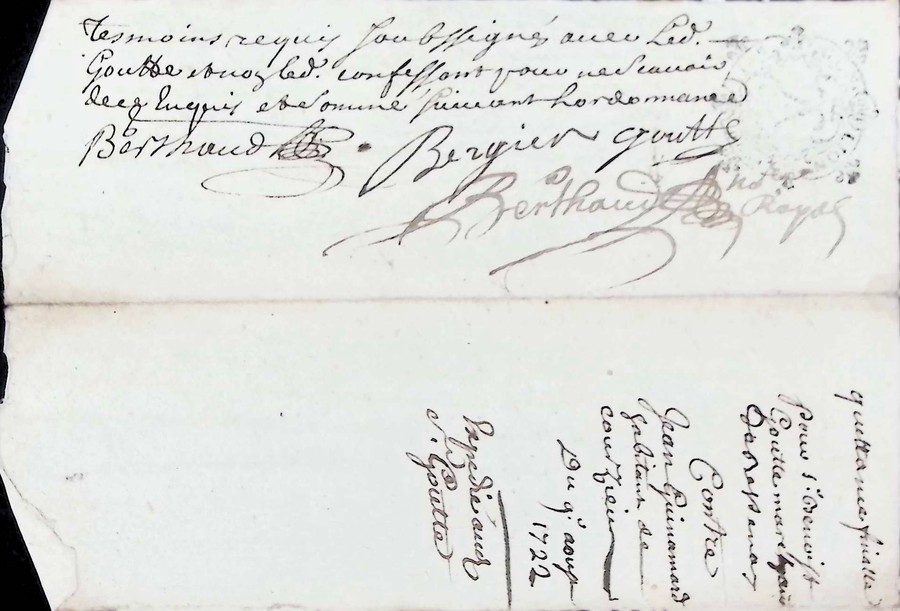 tesmoins requis soubssignés avec led.
Goutte et non led. confessant pour ne scavoir
de ce Enquis et sommé suivant Lordonnance
Berthaud Bergier Goutte
Berthaud no.re Royal
quittance finalle
Pour S.r Benoist
Goutte marchand
Contre
Jean Guinamard
habitant de
courzieu
Du 9.e aoust
1722
Expedié aud.
S.r Goutte